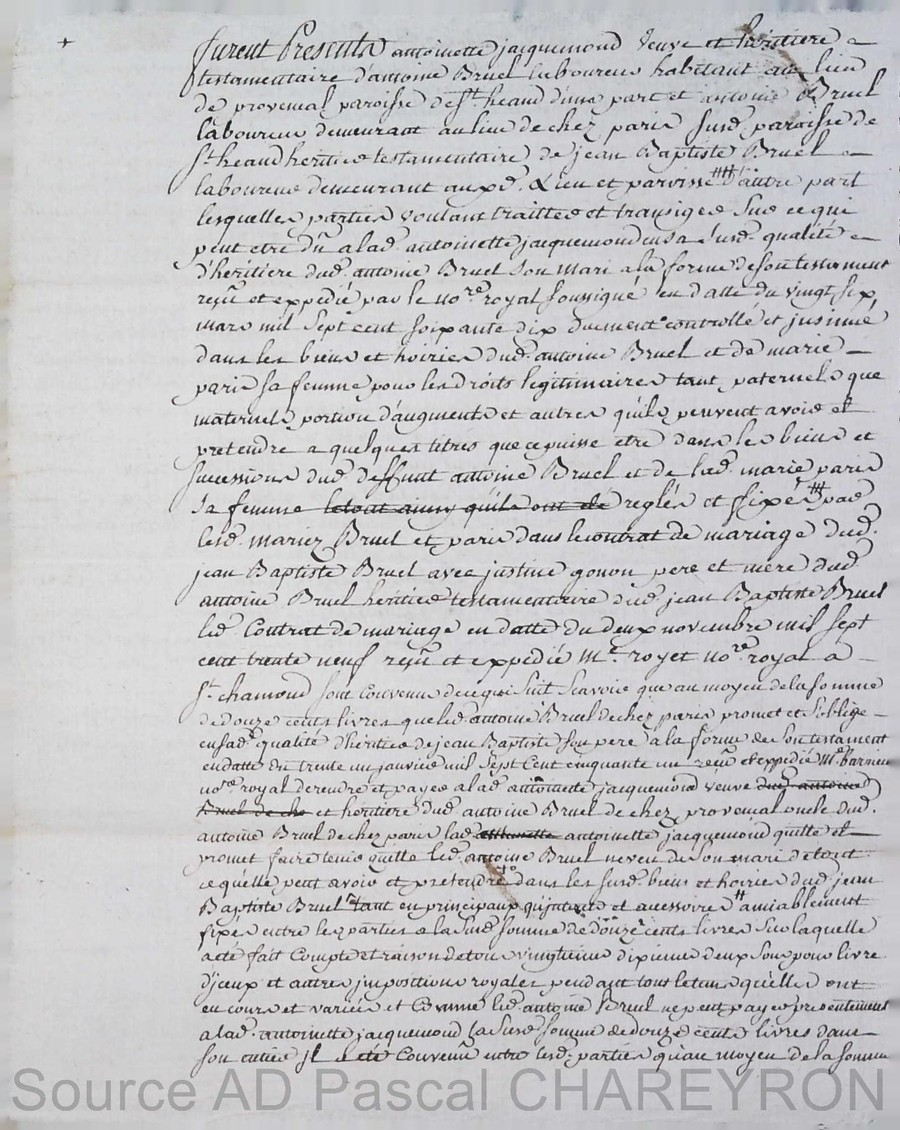 +
furent Presents antoinette jacquemond Veuve et heritiere
testamentaire d'antoine Bruel laboureur habitant au lieu
de provenial paroisse de st. heand d'une part et antoine Bruel
laboureur demeurant au lieu de chez paris susd. paroisse de
st. heand heritier testamentaire de jean Baptiste Bruel
laboureur demeurant aux pd. Lieu et paroisse ## d'autre part
lesquelles parties voulant traitter et transiger sur ce qui
peut etre dû a lad. antoinette jacquemond en sa susd. qualité
d'heritiere dud. antoine Bruel son mari a la forme de son testament
reçû et expedié par le nore. royal soussigné en datte du vingt six
mars mil sept cent soixante dix duement controllé et jnsinué
dans les biens et hoiries dud. antoine Bruel et de marie
paris sa femme pour les droits legitimaires tant paternels que
maternels portion d'augments et autres qu'ils peuvent avoir et
pretendre a quelques titres que ce puisse etre dans les biens et
successions dud. deffunt antoine Bruel et de lad. marie paris
sa femme le tout ainsy qu'ils ont été reglés et fixés ### par
lesd. mariez Bruel et paris dans le contrat de mariage dud.
jean Baptiste Bruel avec justine gonon pere et mere dud.
antoine Bruel heritier testamentaire dud. jean Baptiste Bruel
led. Contrat de mariage en datte du deux novembre mil sept
cent trente neuf reçû et expedié Me. royet nore. royal a
st. chamond sont convenus de ce qui suit scavoir que au moyen de la somme
de douze cents livres que led. antoine Bruel de chez paris promet et s'oblige
en sad. qualité d'heritier de jean Baptiste son pere à la forme de son testament
en datte du trente un janvier mil sept cent cinquante un reçû et expedié Me. barnieu
nore. royal de rendre et payer a lad. antoinette jacquemond veuve dud. antoine
Bruel de che et heritiere dud. antoine Bruel de chez provenial oncle dud.
antoine Bruel de chez paris lad. antoinette jacquemond quitte et
promet faire tenir quitte led. antoine Bruel neveu de son mari de tout
ce qu'elle peut avoir et pretendre dans les susd. biens et hoiries dud. jean
Baptiste Bruel tant en principaux qu'jnterets et accessoires # amiablement
fixés entre les parties a la susd. somme de douze cents livres sur laquelle
a été fait Compte et raison de tous vingtieme dixieme deux sous pour livre
d'jceux et autres jmpositions royales pendant tout le tems qu'elles ont
eu cours et variées et Comme led. antoine Bruel ne peut payer presentement
a lad. antoinette jacquemond la susd. somme de douze cents livres dans
son entier jl a été Convenû entre lesd. parties qu'au moyen de la somme
Source AD Pascal CHAREYRON